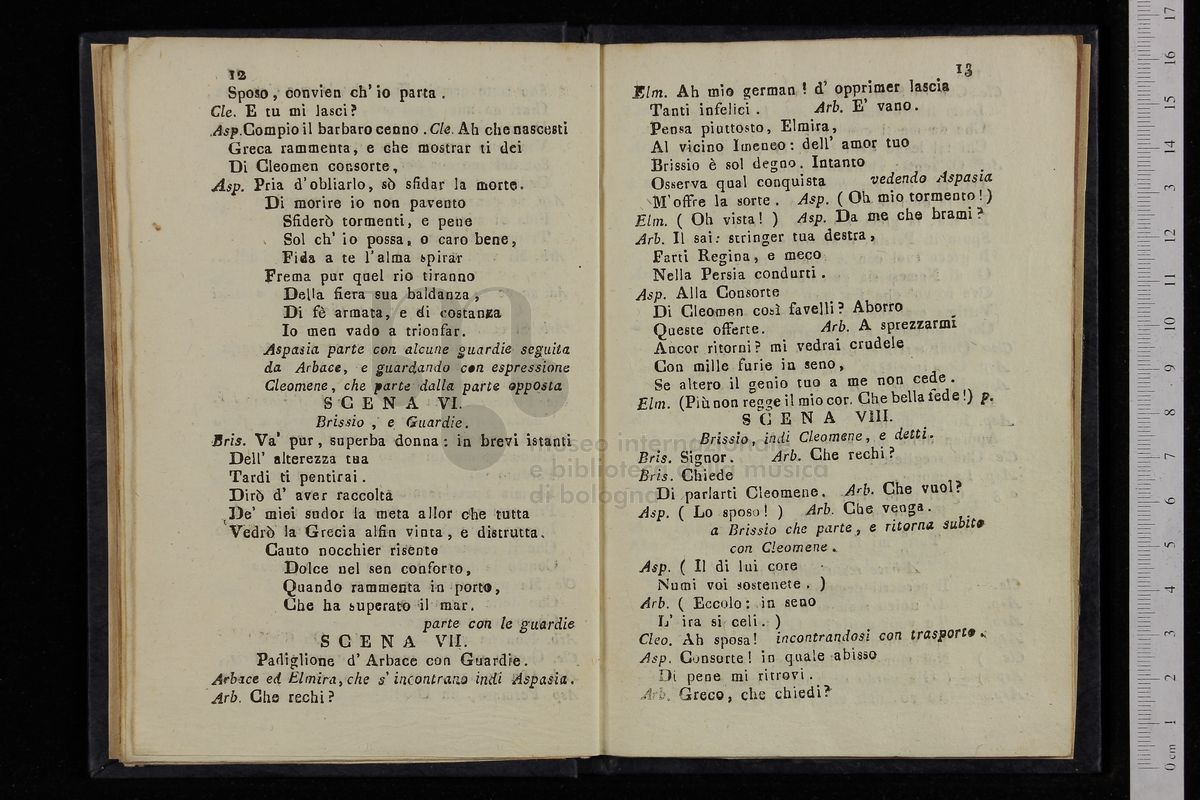 12
Sposo, convien ch' io parta.
Cle. E tu mi lasci?
Asp. Compio il barbaro cenno. Cle. Ah che nascesti
Greca rammenta, e che mostrar ti dei
Di Cleomen consorte,
Asp. Pria d'obliarlo, sò sfidar la morte.
Di morire io non pavento
Sfiderò tormenti, e pene
Sol ch' io possa, o caro bene,
Fida a te l'alma spirar
Frema pur quel rio tiranno
Della fiera sua baldanza,
Di fè armata, e di costanza
Io men vado a trionfar.
Aspasia parte con alcune guardie seguita
da Arbace, e guardando con espressione
Cleomene, che parte dalla parte opposta
SCENA VI.
Brissio, e Guardie.
Bris. Va' pur, superba donna: in brevi istanti
Dell' alterezza tua
Tardi ti pentirai.
Dirò d' aver raccolta
De' miei sudor la meta allor che tutta
Vedrò la Grecia alfin vinta, e distrutta.
Cauto nocchier risente
Dolce nel sen conforto,
Quando rammenta in porto,
Che ha superato il mar.
parte con le guardie
SCENA VII.
Padiglione d' Arbace con Guardie.
Arbace ed Elmira, che s' incontrano indi Aspasia.
Arb. Che rechi?
13
Elm. Ah mio german! d' opprimer lascia
Tanti infelici. Arb. E' vano.
Pensa piuttosto, Elmira,
Al vicino Imeneo: dell' amor tuo
Brissio è sol degno. Intanto
Osserva qual conquista vedendo Aspasia
M'offre la sorte. Asp. (Oh mio tormento!)
Elm. (Oh vista!) Asp. Da me che brami?
Arb. Il sai: stringer tua destra,
Farti Regina, e meco
Nella Persia condurti.
Asp. Alla Consorte
Di Cleomen così favelli? Aborro
Queste offerte. Arb. A sprezzarmi
Ancor ritorni? mi vedrai crudele
Con mille furie in seno,
Se altero il genio tuo a me non cede.
Elm. (Più non regge il mio cor. Che bella fede!) p.
SCENA VIII.
Brissio, indi Cleomene, e detti.
Bris. Signor. Arb. Che rechi?
Bris. Chiede
Di parlarti Cleomene. Arb. Che vuol?
Asp. (Lo sposo!) Arb. Che venga.
a Brissio che parte, e ritorna subito
con Cleomene.
Asp. (Il di lui core
Numi voi sostenete.)
Arb. (Eccolo: in seno
L' ira si celi.)
Cleo. Ah sposa! incontrandosi con trasporto.
Asp. Consorte! in quale abisso
Di pene mi ritrovi.
Arb. Greco, che chiedi?
museo internazionale
e biblioteca della musica
di bologna
0 cm 1 2 3 4 5 6 7 8 9 10 11 12 13 14 15 16 17